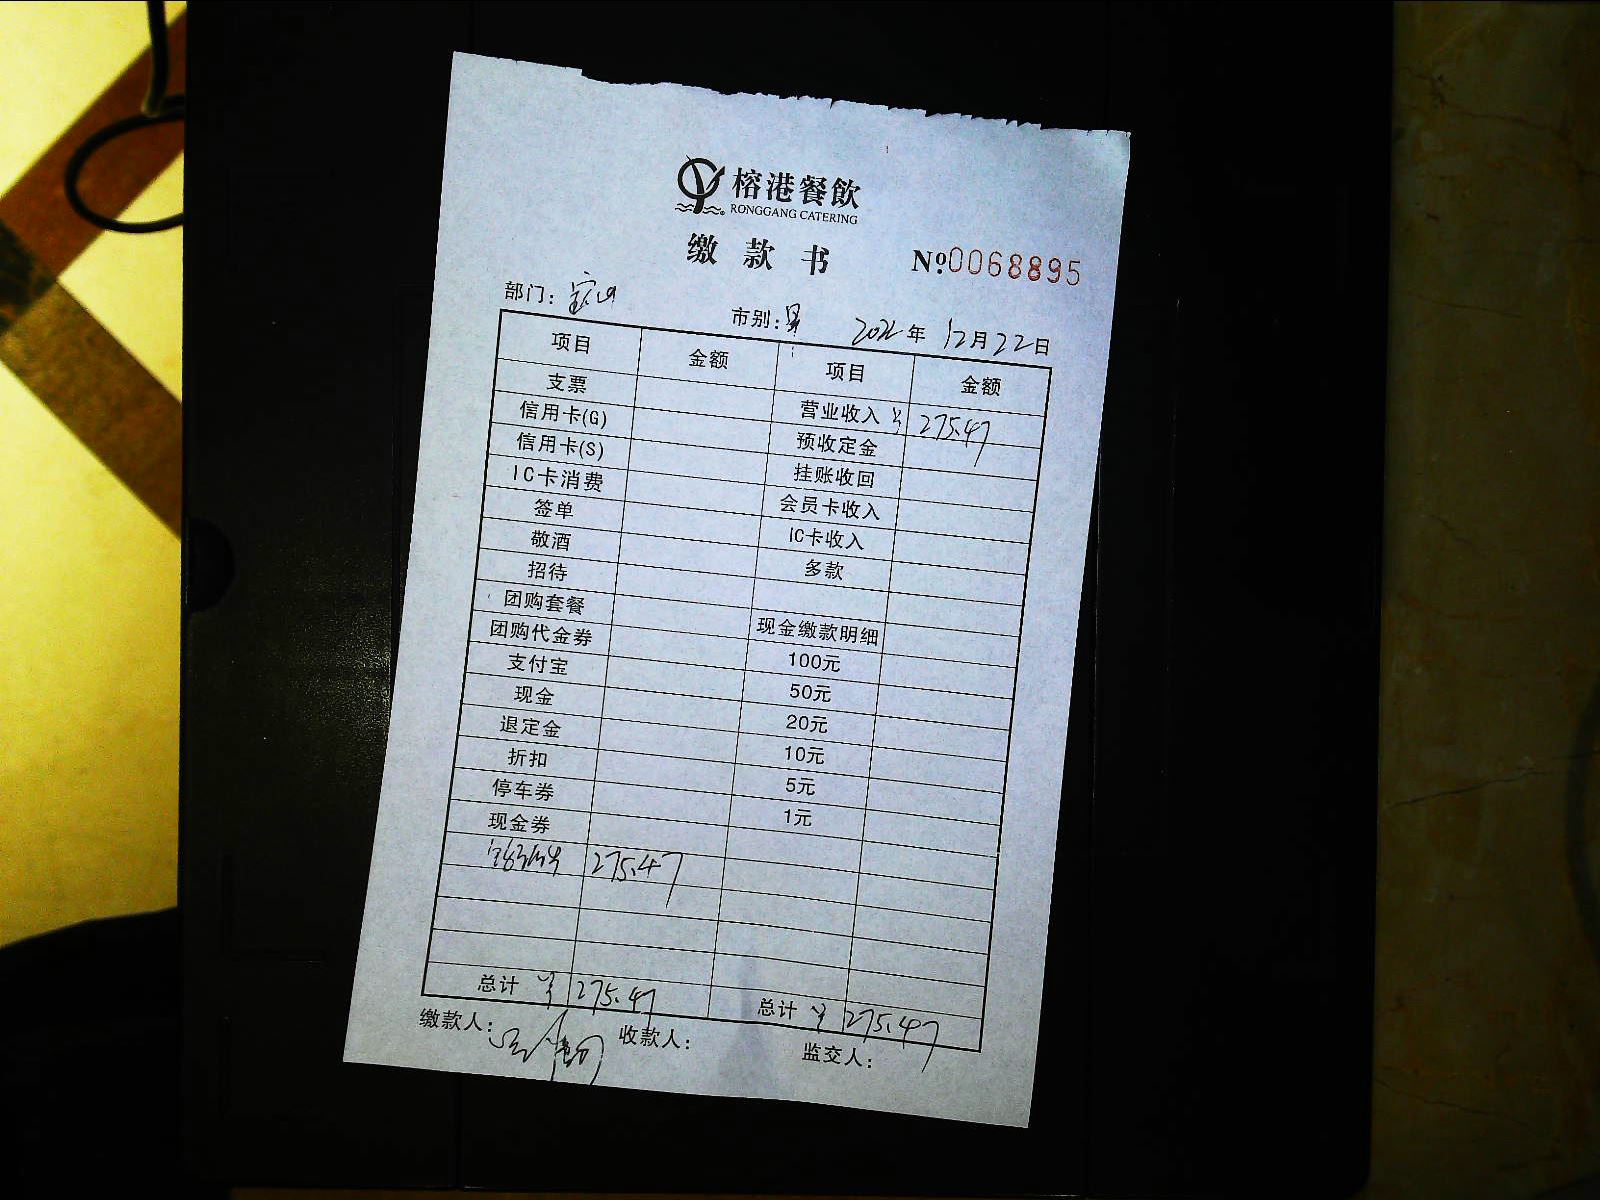 榕港餐飲
RONGGANG CATERING
缴款书 №0068895
部门：宝山 市别： 2022年12月22日
项目 金额 项目 金额
支票 营业收入 ¥ 275.47
信用卡(G) 预收定金
信用卡(S) 挂账收回
IC卡消费 会员卡收入
签单 IC卡收入
敬酒 多款
招待
团购套餐 现金缴款明细
团购代金券 100元
支付宝 50元
现金 20元
退定金 10元
折扣 5元
停车券 1元
现金券
275.47
总计 ¥ 275.47 总计 ¥ 275.47
缴款人： 收款人： 监交人：